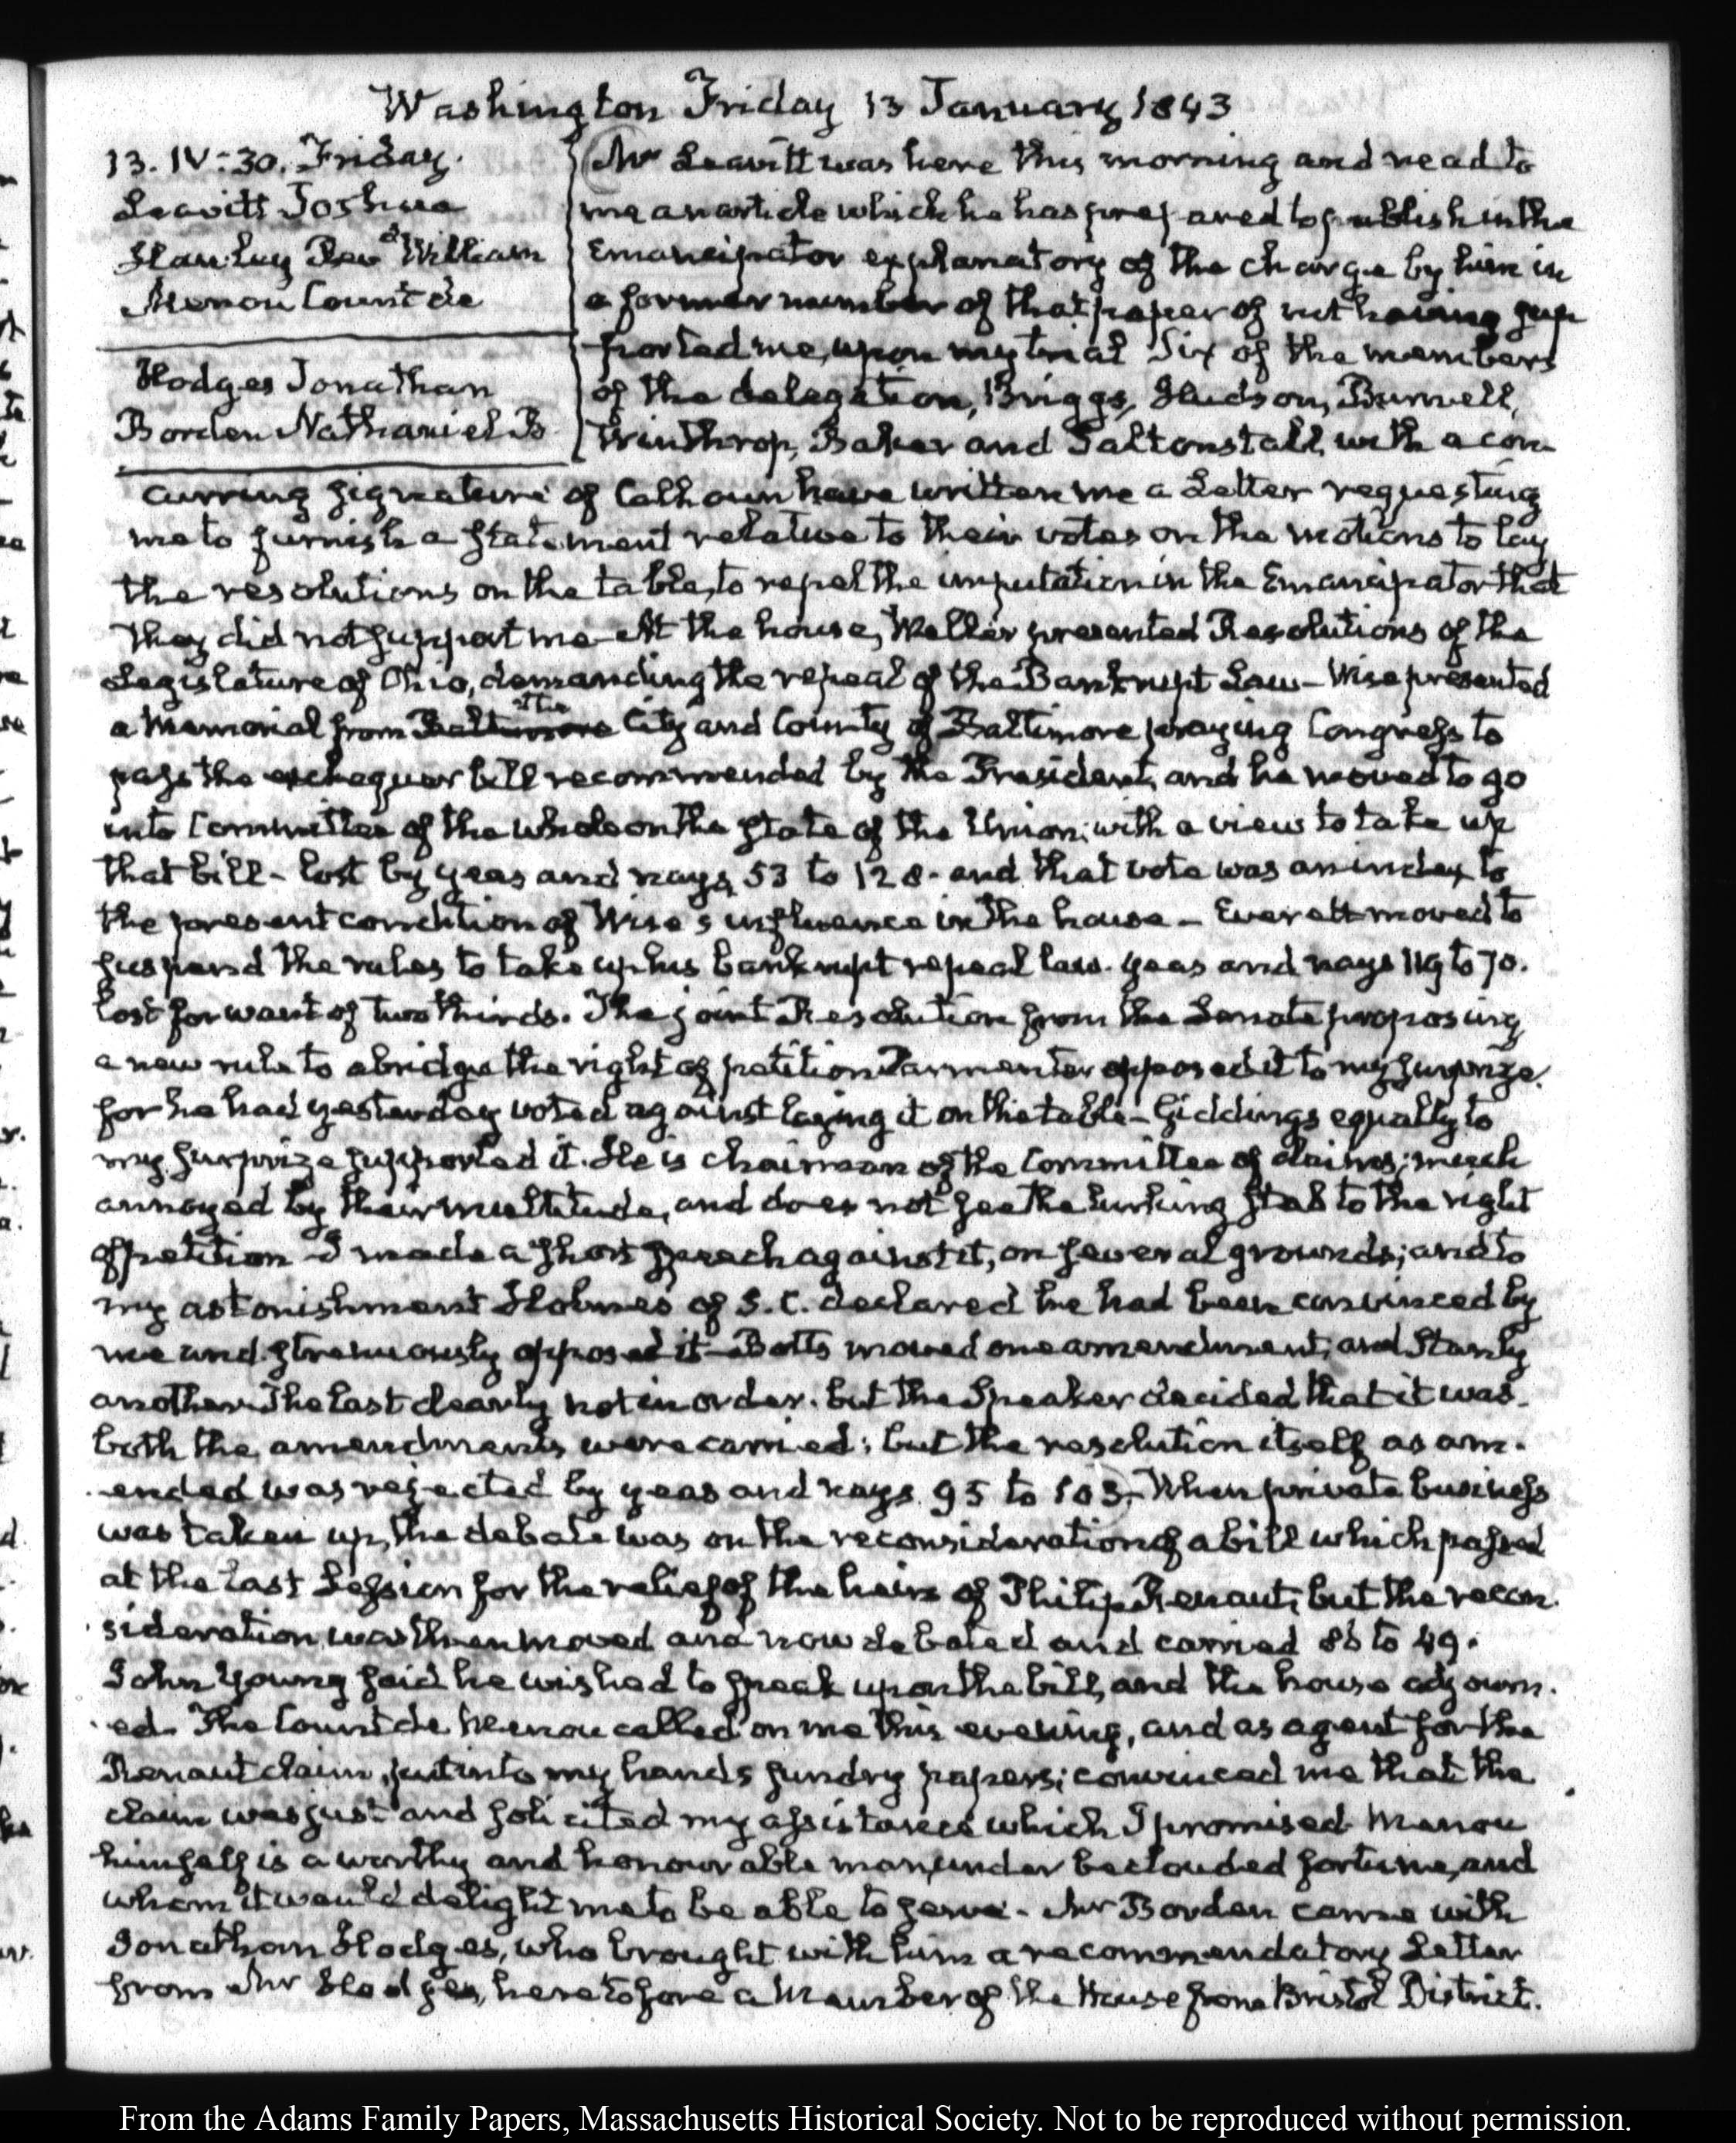 Washington Friday 13 January 1843
13. IV:30. Friday.
Leavitt Joshua
Hawley Revd William
Menou Count de
Hodges Jonathan
Borden Nathaniel B
Mr Leavitt was here this morning and read to
me an article which he has prepared to publish in the
Emancipator explanatory of the charge by him in
a former number of that paper of not having sup
ported me, upon my trial Six of the members
of the delegation, Briggs, Hudson, Burnell,
Winthrop, Baker and Saltonstall, with a con-
curring signature of Calhoun have written me a Letter requesting
me to furnish a statement relative to their votes on the motions to lay
the resolutions on the table, to repel the imputation in the Emancipator that
they did not support me. At the house, Weller presented Resolutions of the
Legislature of Ohio, demanding the repeal of the Bankrupt Law – Wise presented
a Memorial from Baltimore the City and County of Baltimore praying Congress to
pass the exchequer bill recommended by the President, and he moved to go
into Committee of the whole on the state of the Union; with a view to take up
that bill – lost by yeas and nays, 53 to 128 – and that vote was an index to
the present condition of Wise's influence in the house – Everett moved to
suspend the rules to take up his bankrupt repeal law. yeas and nays 119 to 70.
lost for want of two thirds. The joint Resolution from the Senate proposing
a new rule to abridge the right of petition Parmenter opposed it to my surprize.
for he had yesterday voted against laying it on the table – Giddings equally to
my surprize supported it. He is chairman of the Committee of claims; much
annoyed by their multitude, and does not see the lurking stab to the right
of petition I made a short speech against it, on several grounds; and to
my astonishment Holmes of S. C. declared he had been convinced by
me and strenuously opposed it – Botts moved one amendment, and Stanly
another. The last clearly not in order. but the Speaker decided that it was.
both the amendments were carried: but the resolution itself as am-
ended was rejected by yeas and nays. 95 to 103. When private business
was taken up, the debate was on the reconsideration of a bill which passed
at the last Session for the relief of the heirs of Philip Renaut, but the recon-
sideration was then moved and now debated and carried 86 to 49.
John Young said he wished to speak upon the bill, and the house adjourn-
ed. The Count de Menou called on me this evening, and as agent for the
Renaut claim, put into my hands sundry papers; convinced me that the
claim was just and solicited my assistance which I promised. Menou
himself is a worthy and honourable man, under beclouded fortune, and
whom it would delight me to be able to serve. – Mr Borden came with
Jonathan Hodges, who brought with him a recommendatory Letter
from Mr Hodges, heretofore a Member of the House from Bristol District.
From the Adams Family Papers, Massachusetts Historical Society. Not to be reproduced without permission.